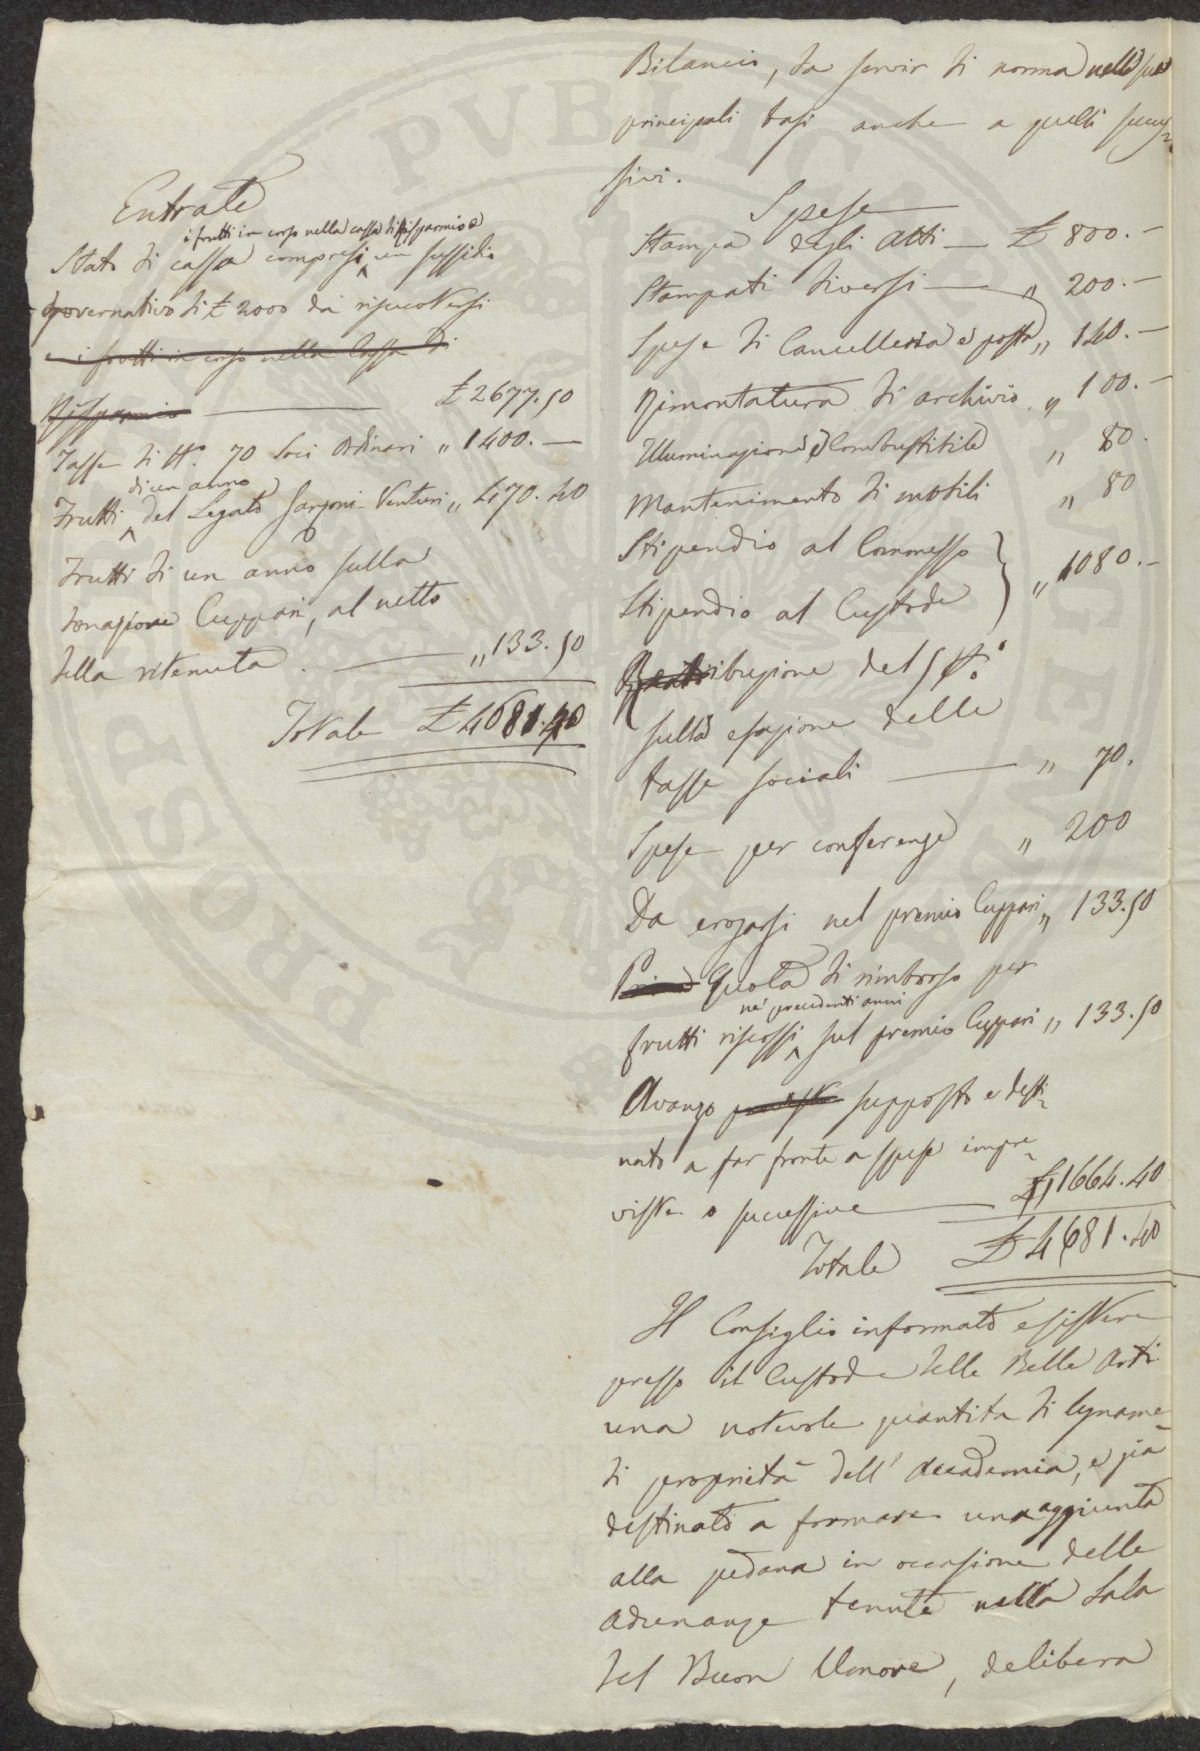 Entrate
i frutti in corso nella cassa di risparmio e
Stato di cassa compresi un sussidio
governativo di £ 2000 da riscuotersi
e i frutti in corso nella Cassa di
Risparmio £ 2677.50
Tasse di N.° 70 Soci Ordinari „ 1400. —
di un anno
Frutti del Legato Sanzoni-Venturi „ 470.40
Frutti di un anno sulla
donazione Cuppari, al netto
della ritenuta. „ 133.50
Totale £ 4681.40
Bilancio, da servir di norma nelle sue
principali basi anche a quelli succes-
sivi.
Spese
Stampa degli Atti — £ 800. —
Stampati diversi — „ 200. —
Spese di Cancelleria e posta „ 140. —
Rimontatura di archivio „ 100. —
Illuminazione e Combustibile „ 80.
Mantenimento di mobili „ 80
Stipendio al Commesso
Stipendio al Custode „ 1080. —
Retribuzione del 5 p.%
sulla esazione delle
tasse sociali — „ 70.
Spese per conferenze „ 200
Da erogarsi nel premio Cuppari „ 133.50
Quota di rimborso per
ne' precedenti anni
frutti riscossi sul premio Cuppari „ 133.50
Avanzo supposto e desti-
nato a far fronte a spese impre-
viste o successive £ 1664.40
Totale £ 4681.40
Il Consiglio informato esistere
presso il Custode delle Belle Arti
una notevole quantità di legname
di proprietà dell' Accademia, e già
destinato a formare una aggiunta
alla pedana in occasione delle
adunanze tenute nella Sala
del Buon Umore, delibera
PROSPERITATI PUBLICAE AUGENDAE